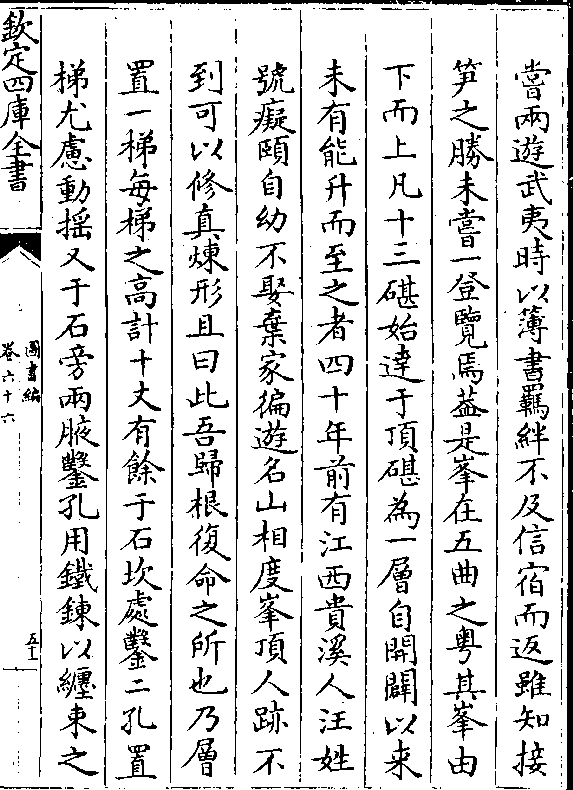 嘗兩遊武夷時以簿書羈絆不及信宿而返雖知接
笋之勝未嘗一登覽焉葢是峯在五曲之粤其峯由
下而上凡十三磹始達于頂磹為一層自開闢以来
未有能升而至之者四十年前有江西貴溪人汪姓
號癡頤自幼不娶棄家徧遊名山相度峯頂人跡不
到可以修真煉形且曰此吾歸根復命之所也乃層
置一梯每梯之高計十丈有餘于石坎處鑿二孔置
梯尤慮動揺又于石旁兩腋鑿孔用鐵鍊以纒束之
欽定四庫全書
圖書編
卷六十六